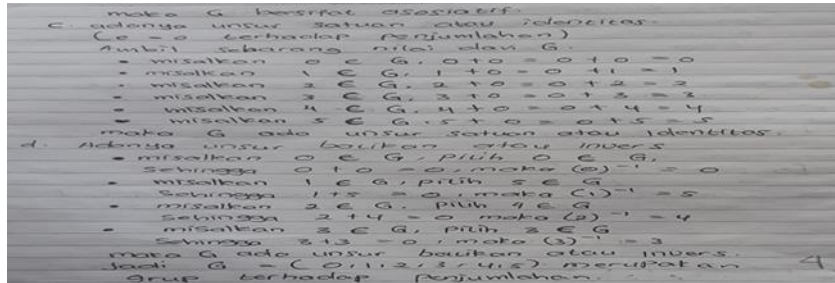 maka G bersifat asosiatif.
c. adanya unsur satuan atau identitas.
(e = 0 terhadap penjumlahan)
Ambil sebarang nilai dari G.
• misalkan 0 ∈ G, 0 + 0 = 0 + 0 = 0
• misalkan 1 ∈ G, 1 + 0 = 0 + 1 = 1
• misalkan 2 ∈ G, 2 + 0 = 0 + 2 = 2
• misalkan 3 ∈ G, 3 + 0 = 0 + 3 = 3
• misalkan 4 ∈ G, 4 + 0 = 0 + 4 = 4
• misalkan 5 ∈ G, 5 + 0 = 0 + 5 = 5
maka G ada unsur satuan atau identitas.
d. Adanya unsur balikan atau invers
• misalkan 0 ∈ G, pilih 0 ∈ G,
sehingga 0 + 0 = 0, maka (0)⁻¹ = 0
• misalkan 1 ∈ G, pilih 5 ∈ G
sehingga 1 + 5 = 0, maka (1)⁻¹ = 5
• misalkan 2 ∈ G, pilih 4 ∈ G
sehingga 2 + 4 = 0 maka (2)⁻¹ = 4
• misalkan 3 ∈ G, pilih 3 ∈ G
sehingga 3 + 3 = 0, maka (3)⁻¹ = 3
maka G ada unsur balikan atau invers.
Jadi G = (0, 1, 2, 3, 4, 5) merupakan 4
grup terhadap penjumlahan.